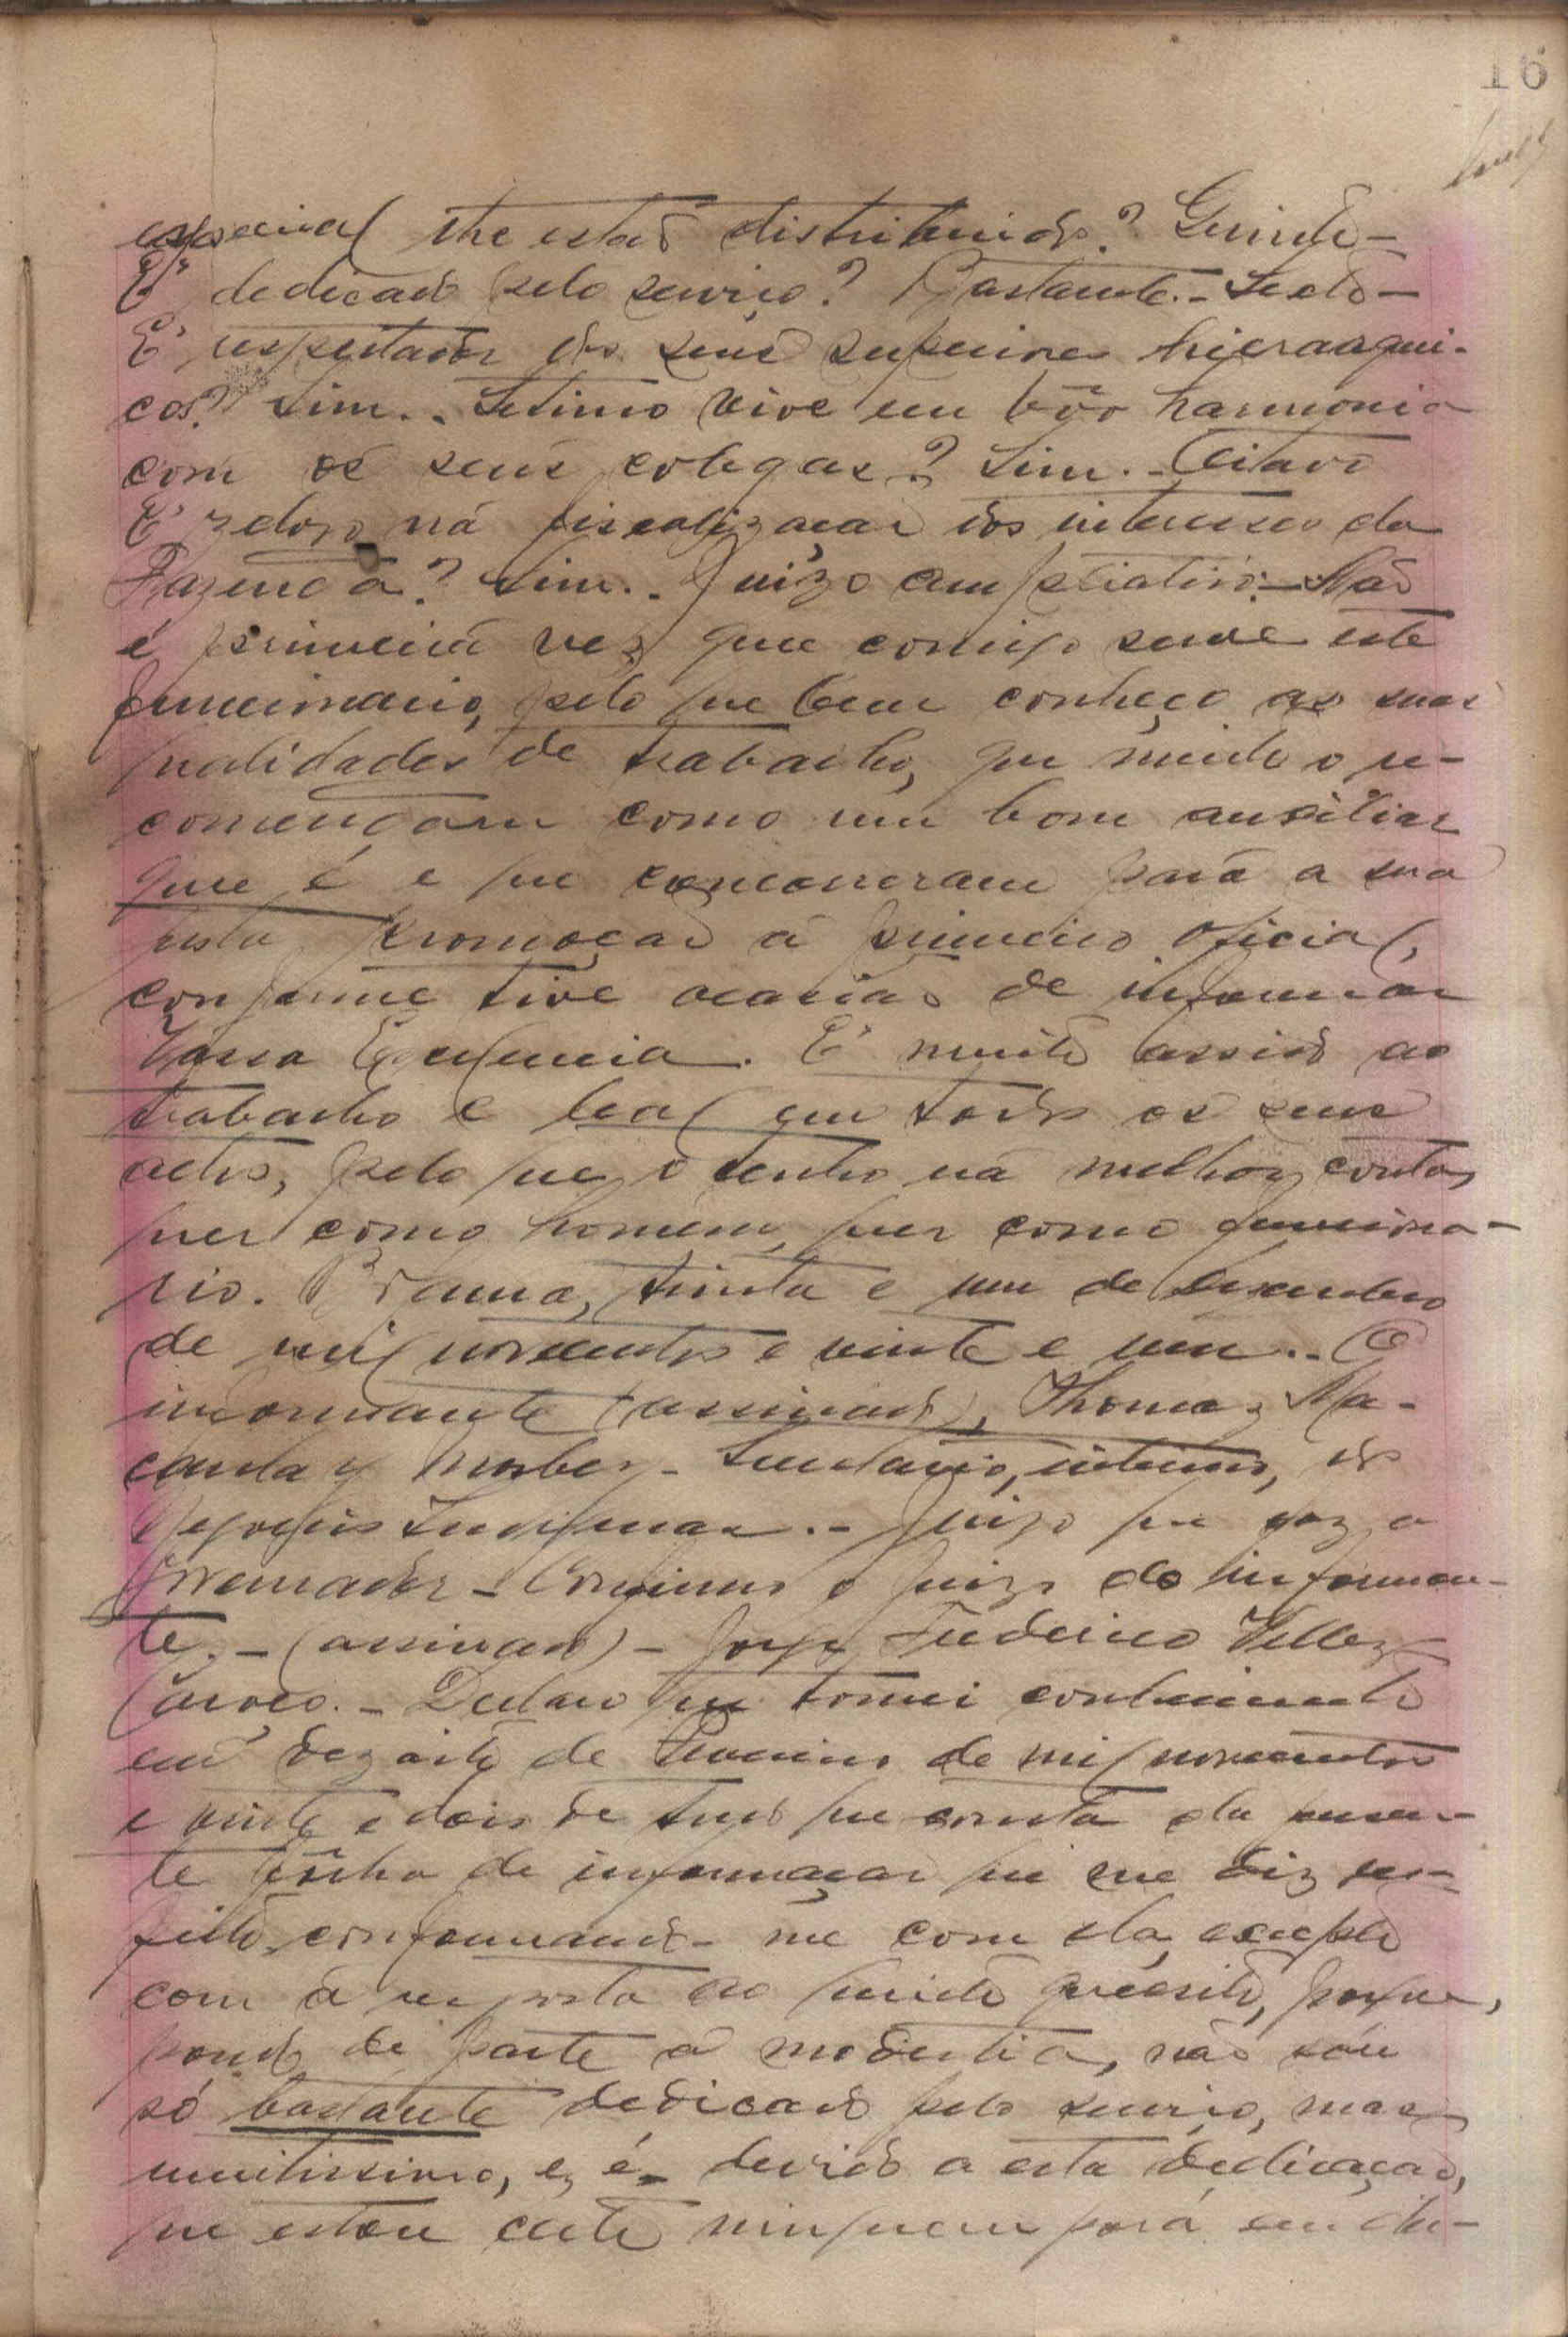 16
especial lhe estão distribuidos? Quinto -
E' dedicado pelo serviço? Bastante. - Sexto -
E' respeitador dos seus superiores hierarqui-
cos? Sim. - Setimo Vive em bôa harmonia
com os seus colegas? Sim. - Oitavo
E' zeloso na fiscalização dos interesses da
Fazenda? Sim. - Juizo ampliativo: - Não
é primeira vez que comigo serve este
funcionario, pelo que bem conheço as suas
qualidades de trabalho, que muito o re-
comendam como um bom auxiliar
que é e que concorreram para a sua
justa promoção a primeiro oficial,
conforme tive ocasião de informar
Vossa Excelencia. E' muito assiduo ao
trabalho e leal em todos os seus
actos, pelo que o tenho na melhor conta,
quer como homem, quer como funciona-
rio. Bolama, trinta e um de Dezembro
de mil novecentos e vinte e um. - O
informante (assinado), Thomaz Ma-
 - Secretario, interino, dos
Negocios Indigenas. - Juizo que faz o
Governador - Confirmo o juizo do informan-
te. - (assinado) - Jorge Frederico Vellez
Caroço. - Declaro que tomei conhecimento
em dezoito de Janeiro de mil novecentos
e vinte e dois de tudo que consta da presen-
te folha de informação que me diz res-
peito, conformando-me com ela, excepto
com a resposta ao quinto quesito, porque,
pondo de parte a modestia, não sou
só bastante dedicado pelo serviço, mas
muitissimo, e, é devido a esta dedicação,
que estou certo ninguem porá em du-